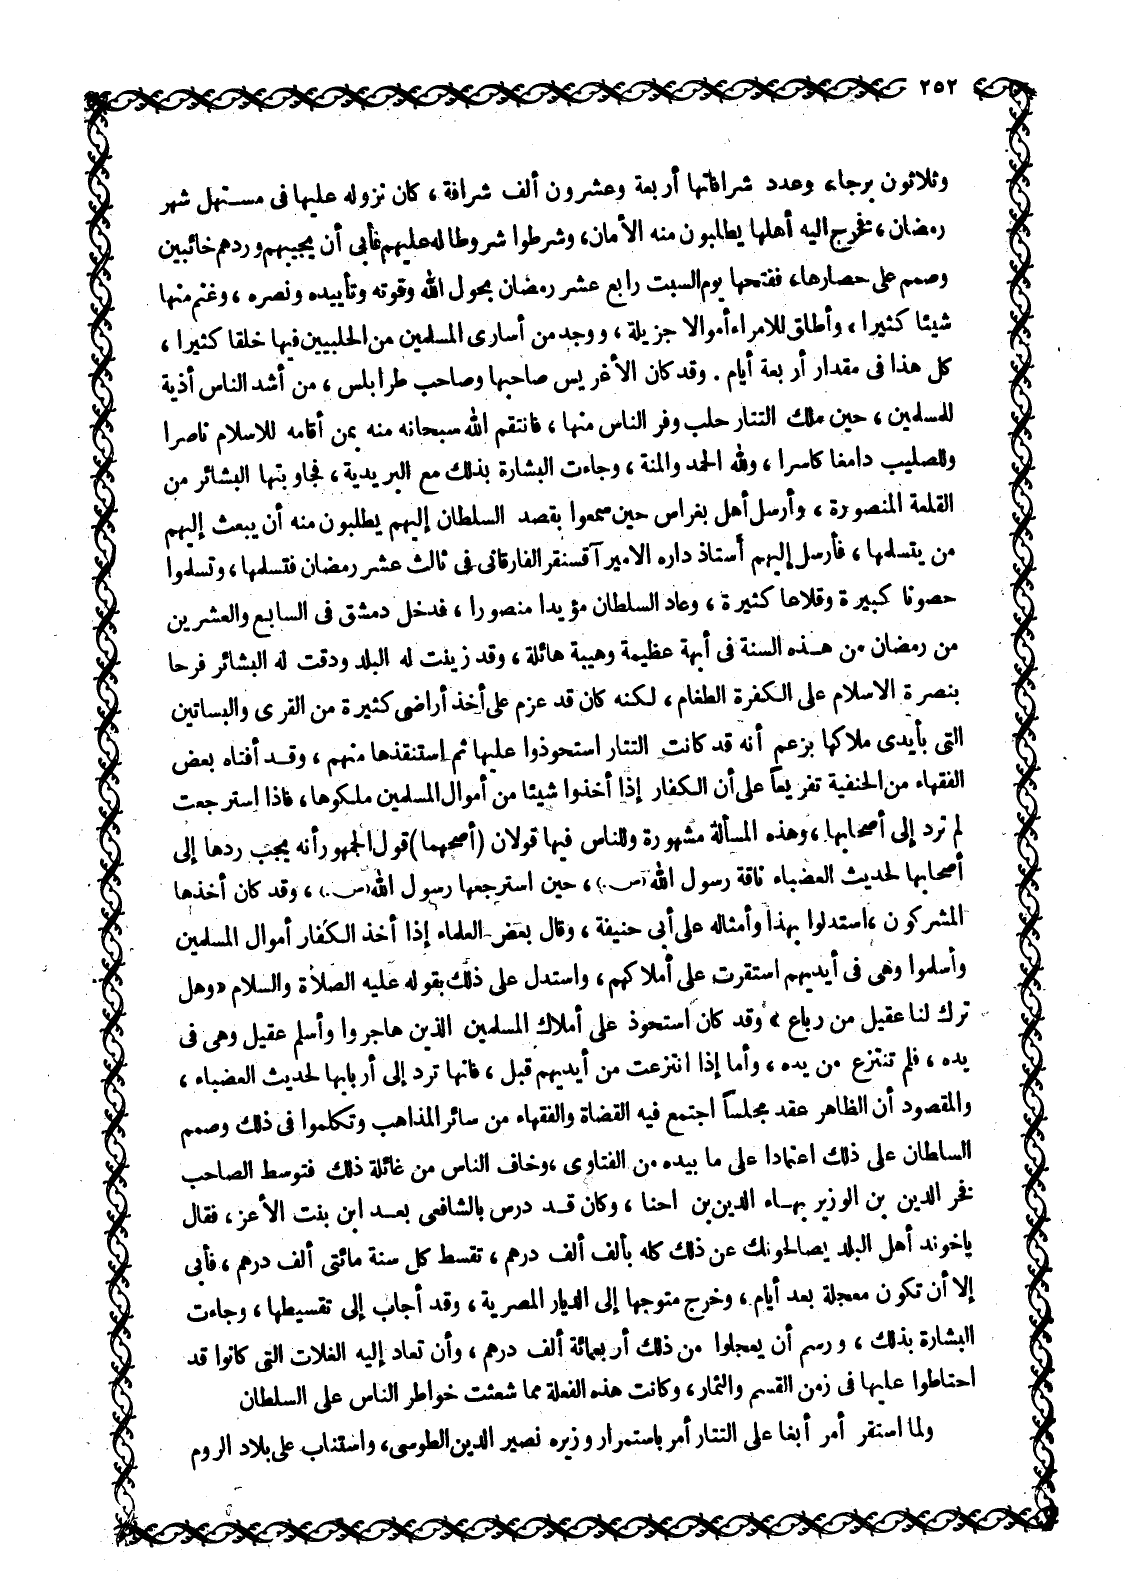 ٢٥٢
وثلاثون برجا، وعدد شرافاتها أربعة وعشرون ألف شرافة ، كان نزوله عليها فى مستهل شهر
رمضان ، فخرج اليه أهلها يطلبون منه الأمان، وشرطوا شروطا له عليهم فأبى أن يجيبهم وردهم خائبين
وصمم على حصارها، ففتحها يوم السبت رابع عشر رمضان بحول الله وقوته وتأييده ونصره ، وغنم منها
شيئا كثيرا ، وأطلق للامراء أموالا جزيلة ، ووجد من أسارى المسلمين من الحلبيين فيها خلقا كثيرا ،
كل هذا فى مقدار أربعة أيام . وقد كان الأغريس صاحبها وصاحب طرابلس ، من أشد الناس أذية
للمسلمين ، حين ملك التتار حلب وفر الناس منها ، فانتقم الله سبحانه منه بمن أقامه للاسلام ناصرا
وللصليب دامغا كاسرا ، ولله الحمد والمنة ، وجاءت البشارة بذلك مع البريدية ، فجاوبتها البشائر من
القلعة المنصورة ، وأرسل أهل بغراس حين سمعوا بقصد السلطان إليهم يطلبون منه أن يبعث إليهم
من يتسلمها ، فأرسل إليهم أستاذ داره الامير آقسنقر الفارقانى فى ثالث عشر رمضان فتسلمها ، وتسلموا
حصونا كبيرة وقلاعا كثيرة ، وعاد السلطان مؤيدا منصورا ، فدخل دمشق فى السابع والعشرين
من رمضان من هذه السنة فى أبهة عظيمة وهيبة هائلة ، وقد زينت له البلد ودقت له البشائر فرحا
بنصرة الاسلام على الكفرة الطغام ، لكنه كان قد عزم على أخذ أراضى كثيرة من القرى والبساتين
التى بأيدى ملاكها بزعم أنه قد كانت التتار استحوذوا عليها ثم استنقذها منهم ، وقد أفتاه بعض
الفقهاء من الحنفية تفريعاً على أن الكفار إذا أخذوا شيئا من أموال المسلمين ملكوها ، فاذا استرجعت
لم ترد إلى أصحابها ، وهذه المسألة مشهورة وللناس فيها قولان (أصحهما) قول الجمهور أنه يجب ردها إلى
أصحابها لحديث العضباء ناقة رسول الله (ص.) ، حين استرجعها رسول الله (ص.) ، وقد كان أخذها
المشركون ، استدلوا بهذا وأمثاله على أبى حنيفة ، وقال بعض العلماء إذا أخذ الكفار أموال المسلمين
وأسلموا وهى فى أيديهم استقرت على أملاكهم ، واستدل على ذلك بقوله عليه الصلاة والسلام «وهل
ترك لنا عقيل من رباع » وقد كان استحوذ على أملاك المسلمين الذين هاجروا وأسلم عقيل وهى فى
يده ، فلم تنتزع من يده ، وأما إذا انتزعت من أيديهم قبل ، فانها ترد إلى أربابها لحديث العضباء ،
والمقصود أن الظاهر عقد مجلساً اجتمع فيه القضاة والفقهاء من سائر المذاهب وتكلموا فى ذلك وصمم
السلطان على ذلك اعتمادا على ما بيده من الفتاوى ، وخاف الناس من غائلة ذلك فتوسط الصاحب
فخر الدين بن الوزير بهاء الدين بن احنا ، وكان قد درس بالشافعى بعد ابن بنت الأعز ، فقال
ياخوند أهل البلد يصالحونك عن ذلك كله بألف ألف درهم ، تقسط كل سنة مائتى ألف درهم ، فأبى
إلا أن تكون معجلة بعد أيام ، وخرج متوجها إلى الديار المصرية ، وقد أجاب إلى تقسيطها ، وجاءت
البشارة بذلك ، ورسم أن يعجلوا من ذلك أربعمائة ألف درهم ، وأن تعاد إليه الغلات التى كانوا قد
احتاطوا عليها فى زمن القسم والثمار ، وكانت هذه الفعلة مما شعثت خواطر الناس على السلطان
ولما استقر أمر أبغا على التتار أمر باستمرار وزيره نصير الدين الطوسى، واستناب على بلاد الروم